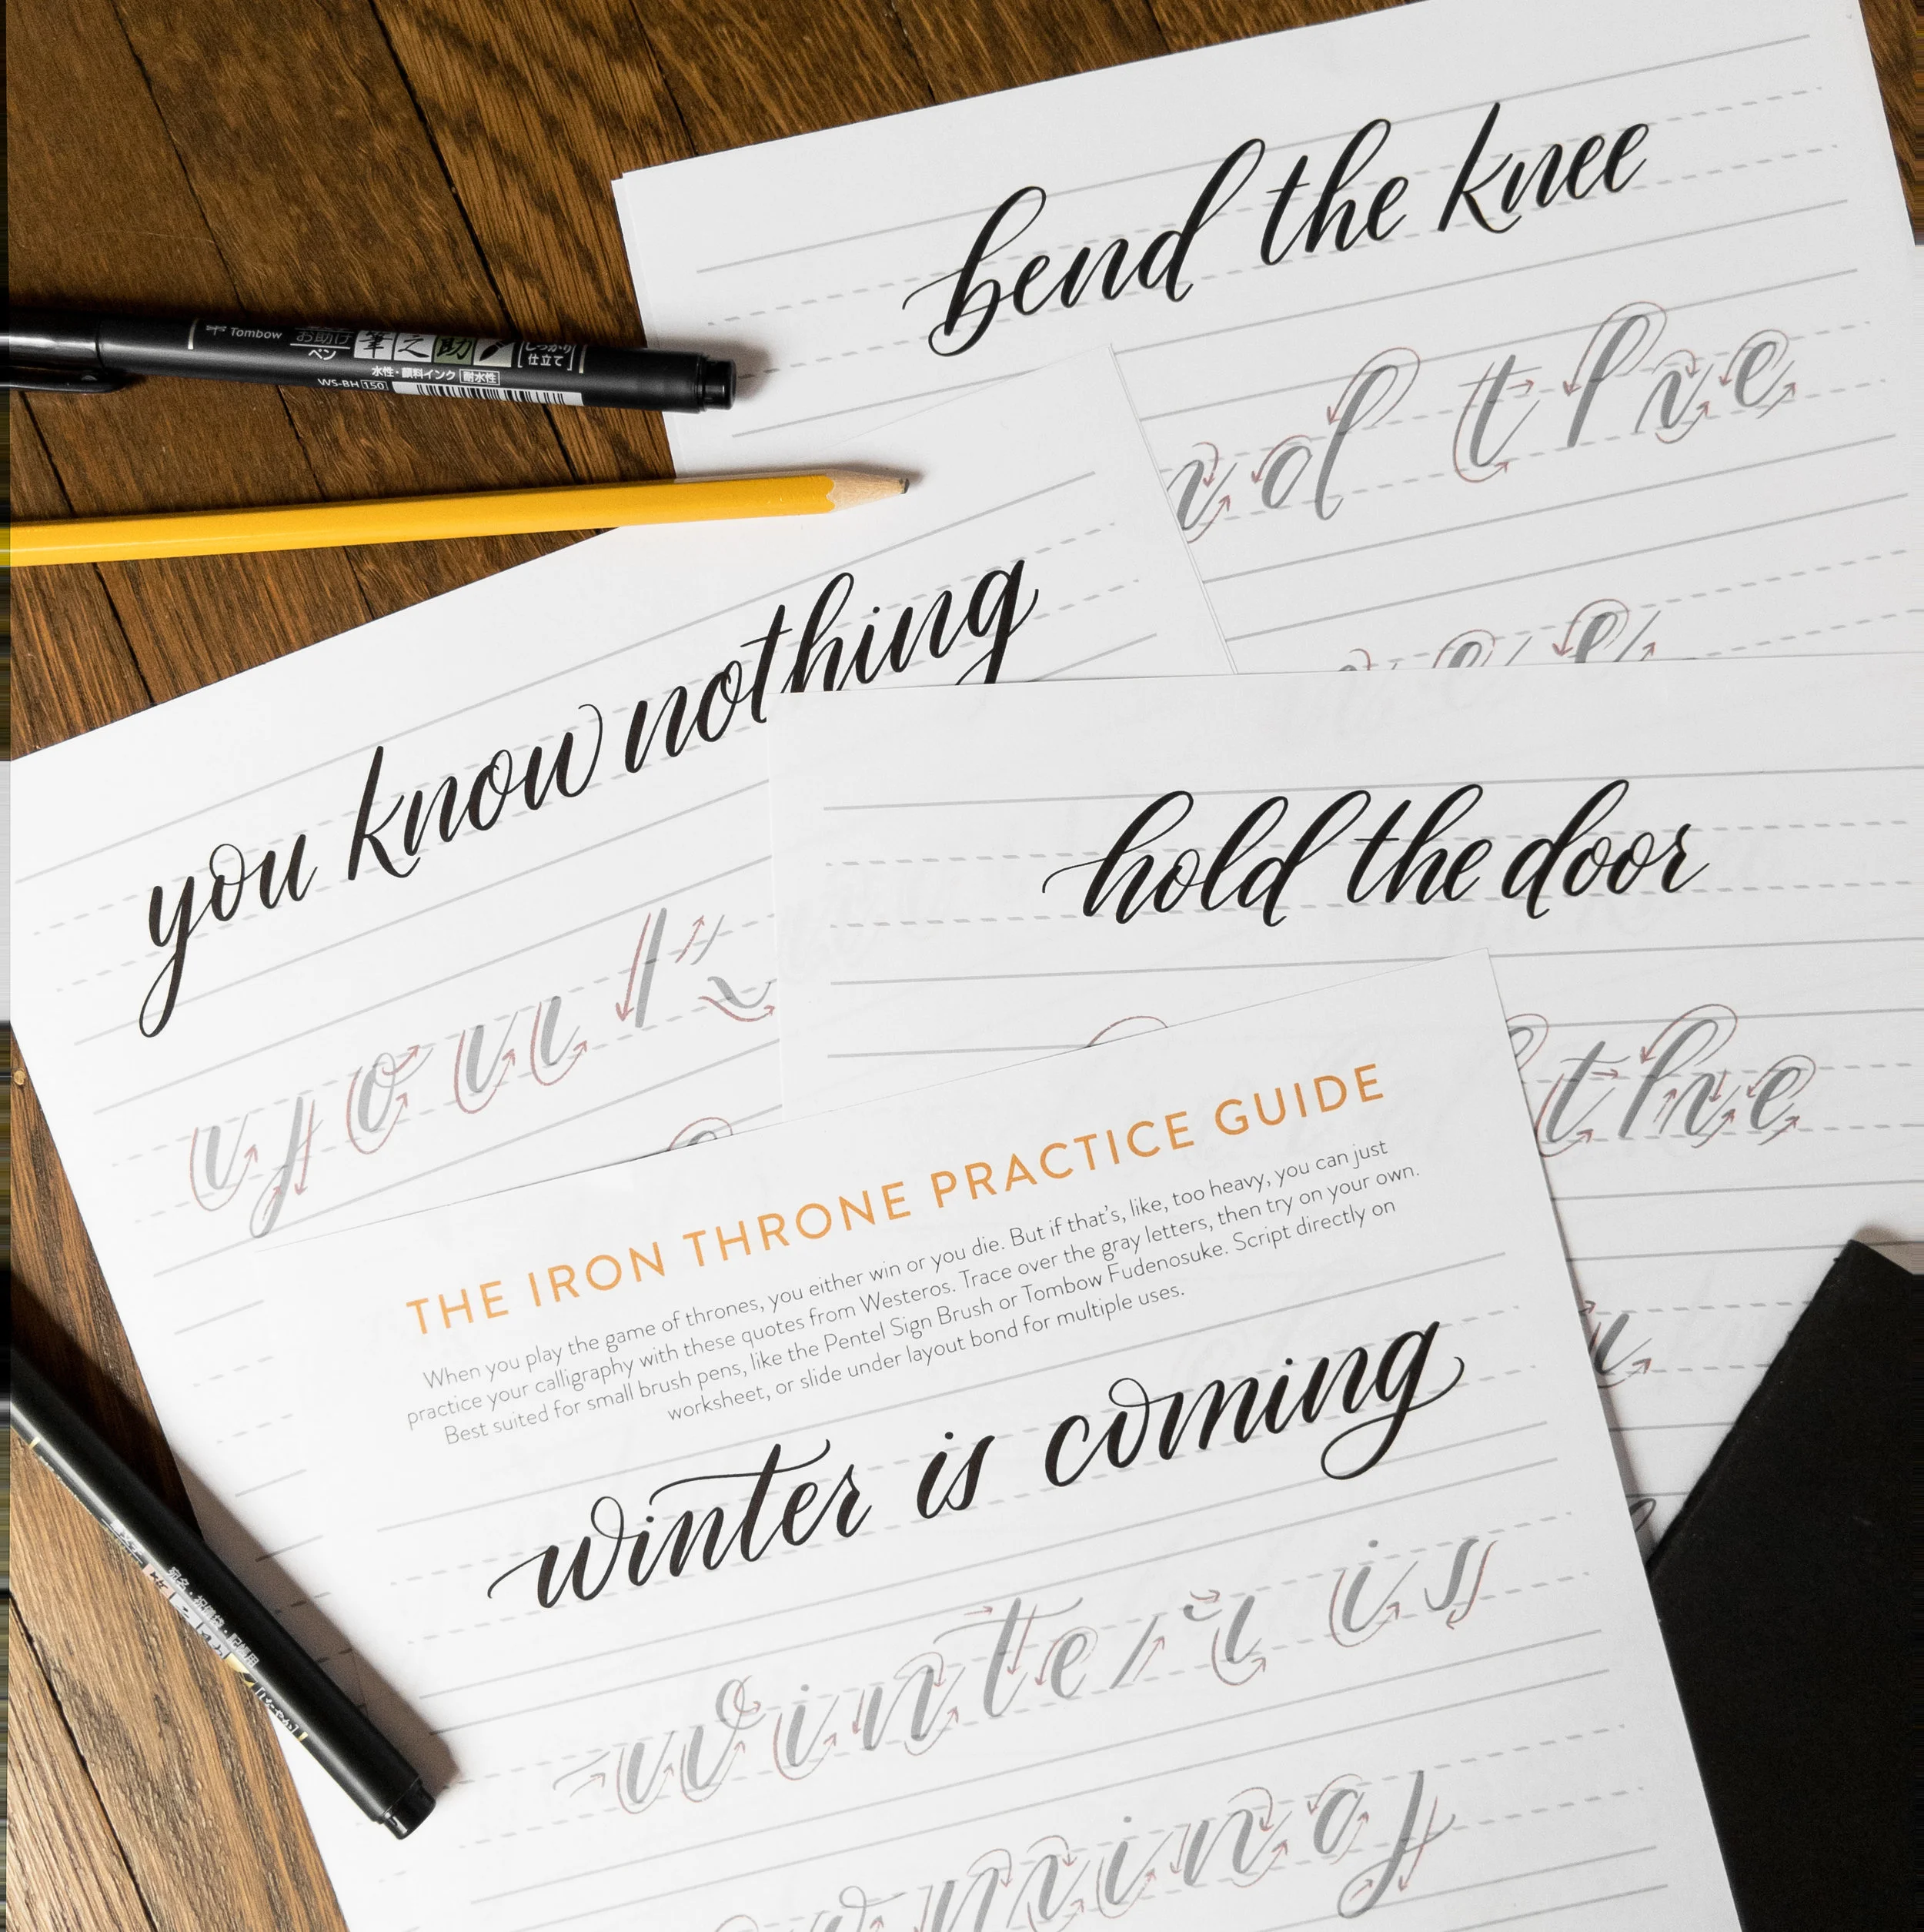 bend the knee
Tombow お助け ペン 筆之助 しっかり 仕立て
水性・顔料インク 耐水性
WS-BH 150
n d t h e
you know nothing
hold the door
y o u k
t h e
THE IRON THRONE PRACTICE GUIDE
When you play the game of thrones, you either win or you die. But if that's, like, too heavy, you can just
practice your calligraphy with these quotes from Westeros. Trace over the gray letters, then try on your own.
Best suited for small brush pens, like the Pentel Sign Brush or Tombow Fudenosuke. Script directly on
worksheet, or slide under layout bond for multiple uses.
winter is coming
w i n t e r i s
m i n g